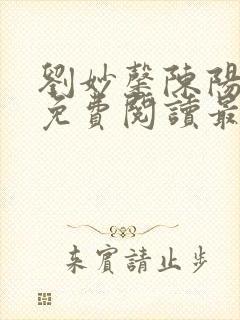 劉妙馨陳陽
免費閱讀最
來賓請止步